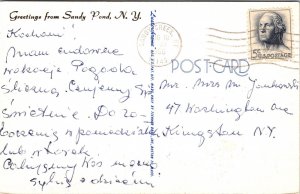 Greetings from Sandy Pond, N. Y.
Kochani!
Mam cudowne
wakacje Pogoda
śliczna. Czujemy się
świetnie. Do zo-
baczenia w poniedziałek
lub wtorek.
Całujemy Was mocno
z dziećmi
5¢ U.S. POSTAGE
POST CARD
Mr. Mrs M. Jankowski
47 Washington Ave
Kingston NY.